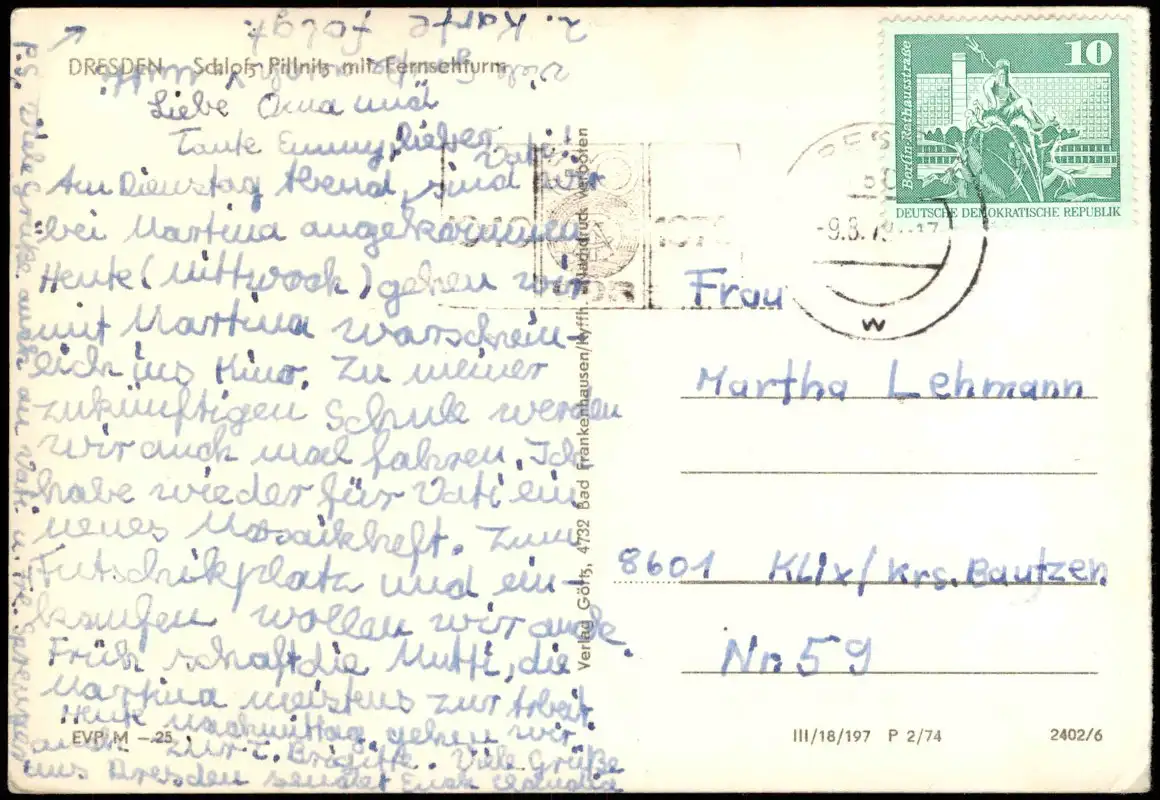 2. Karte folgt
DRESDEN Schloß Pillnitz mit Fernsehturm
Liebe Oma und
Tante Emmy, lieber
Vati!
Am Dienstag Abend, sind wir
bei Martina angekommen
Heute (Mittwoch) gehen wir
mit Martina warschein-
lich ins Kino. Zu meiner
zukünftigen Schule werden
wir auch mal fahren. Ich
habe wieder für Vati ein
neues Mosaikheft. Zum
Futschikplatz und ein-
kaufen wollen wir auch.
Früh schaft die Mutti, die
Martina meistens zur Arbeit.
Heute nachmittag gehen wir
auch zur T. Brigitte. Viele Grüße
aus Dresden sendet Euch Claudia
P.S. Viele Grüße auch an Vati u.
EVP M -.25
Verlag Göttz, 4732 Bad Frankenhausen/Kyffh. Nachdruck verboten
10
Berlin, Rathausstraße
DEUTSCHE DEMOKRATISCHE REPUBLIK
1949
DDR
-9.8.79
w
Frau
Martha Lehmann
8601 Klix/Krs. Bautzen
Nr. 59
III/18/197 P 2/74
2402/6